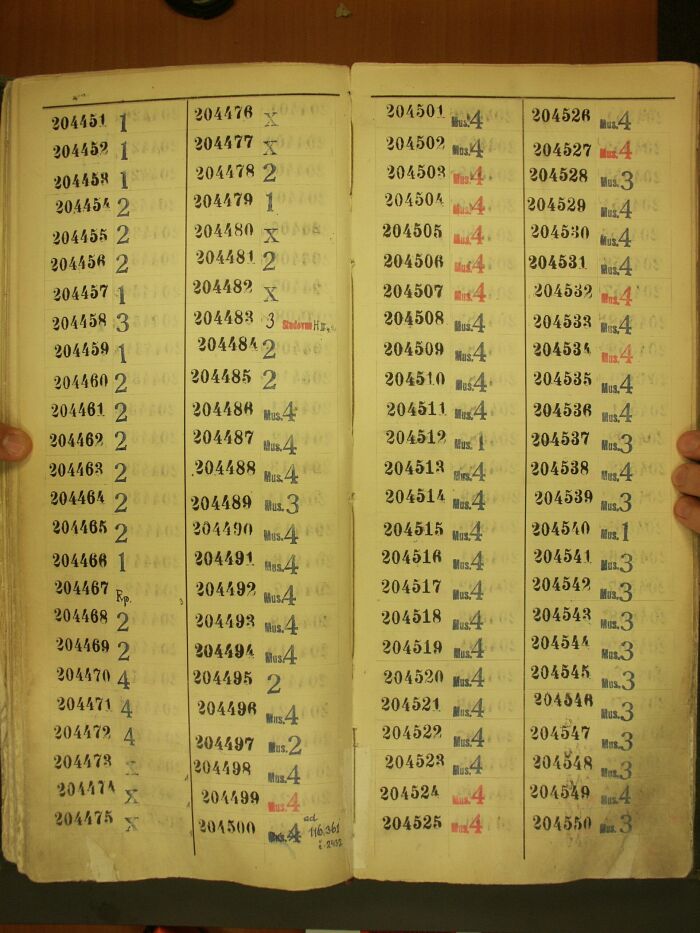 204451 1
204452 1
204453 1
204454 2
204455 2
204456 2
204457 1
204458 3
204459 1
204460 2
204461 2
204462 2
204463 2
204464 2
204465 2
204466 1
204467 Rp.
204468 2
204469 2
204470 4
204471 4
204472 4
204473 x
204474 x
204475 x
204476 x
204477 x
204478 2
204479 1
204480 x
204481 2
204482 x
204483 3
204484 2
204485 2
204486 Mus. 4
204487 Mus. 4
204488 Mus. 4
204489 Mus. 3
204490 Mus. 4
204491 Mus. 4
204492 Mus. 4
204493 Mus. 4
204494 Mus. 4
204495 2
204496 Mus. 4
204497 Mus. 2
204498 Mus. 4
204499 Mus. 4
204500 Mus. 4 ad 116,361
204501 Mus. 4
204502 Mus. 4
204503 Mus. 4
204504 Mus. 4
204505 Mus. 4
204506 Mus. 4
204507 Mus. 4
204508 Mus. 4
204509 Mus. 4
204510 Mus. 4
204511 Mus. 4
204512 Mus. 1
204513 Mus. 4
204514 Mus. 4
204515 Mus. 4
204516 Mus. 4
204517 Mus. 4
204518 Mus. 4
204519 Mus. 4
204520 Mus. 4
204521 Mus. 4
204522 Mus. 4
204523 Mus. 4
204524 Mus. 4
204525 Mus. 4
204526 Mus. 4
204527 Mus. 4
204528 Mus. 3
204529 Mus. 4
204530 Mus. 4
204531 Mus. 4
204532 Mus. 4
204533 Mus. 4
204534 Mus. 4
204535 Mus. 4
204536 Mus. 4
204537 Mus. 3
204538 Mus. 4
204539 Mus. 3
204540 Mus. 1
204541 Mus. 3
204542 Mus. 3
204543 Mus. 3
204544 Mus. 3
204545 Mus. 3
204546 Mus. 3
204547 Mus. 3
204548 Mus. 3
204549 Mus. 4
204550 Mus. 3